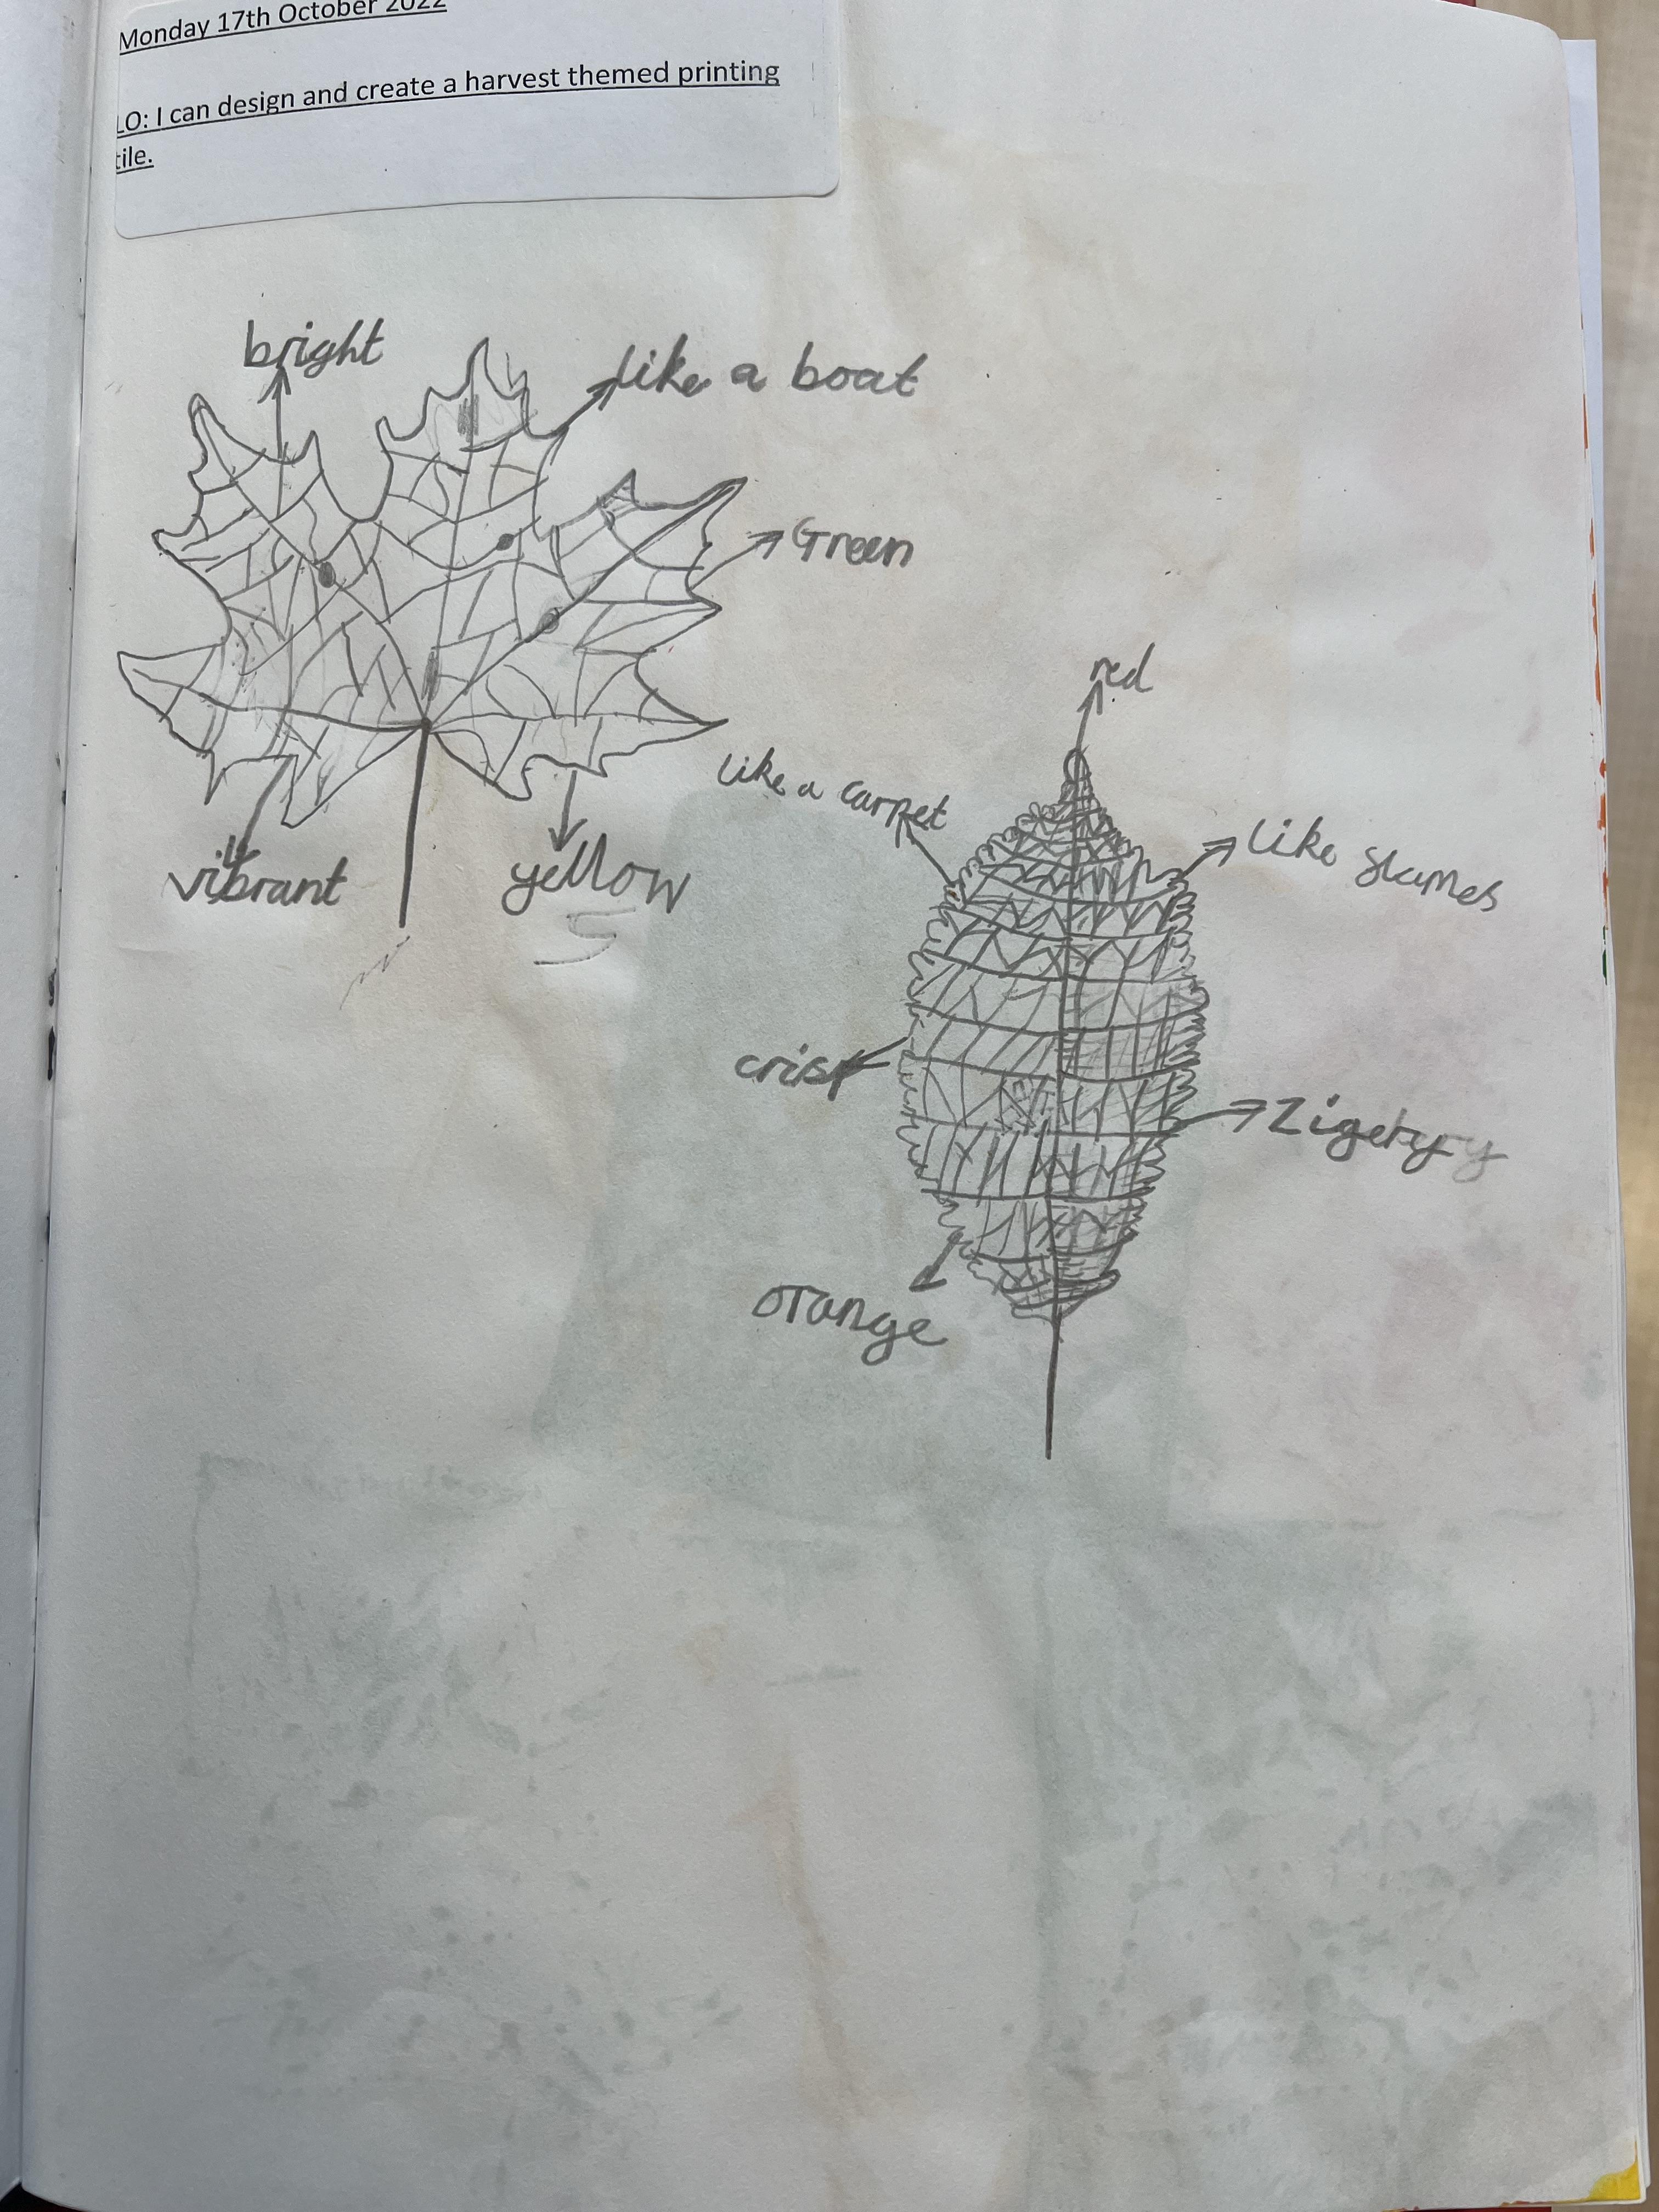 Monday 17th October 2022
LO: I can design and create a harvest themed printing
tile.
bright
like a boat
Green
vibrant
yellow
red
like a carpet
like flames
crisp
orange